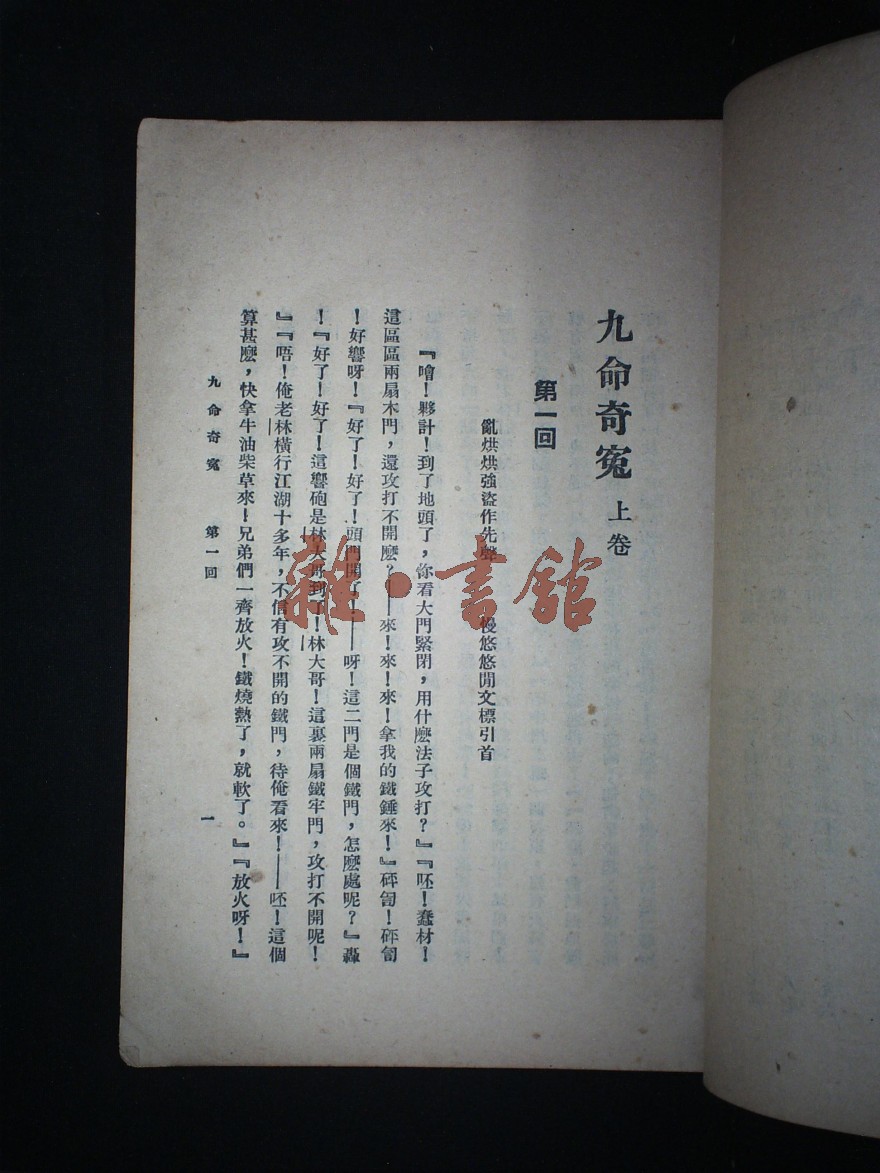 九命奇冤 上卷
第一回
亂烘烘強盜作先聲 慢悠悠閒文標引首
『噲！夥計！到了地頭了，你看大門緊閉，用什麽法子攻打？』『呸！蠢材！
這區區兩扇木門，還攻打不開麽？——來！來！來！拿我的鐵錘來！』砰訇！砰訇
！好響呀！『好了！好了！頭門開了！——呀！這二門是個鐵門，怎麽處呢？』轟
！『好了！好了！這響砲是林大哥到了！林大哥！這裏兩扇鐵牢門，攻打不開呢！
』『唔！俺老林橫行江湖十多年，不信有攻不開的鐵門，待俺看來！——呸！這個
算甚麽，快拿牛油柴草來！兄弟們一齊放火！鐵燒熱了，就軟了。』『放火呀！』
九命奇冤 第一回
一
雜·書館